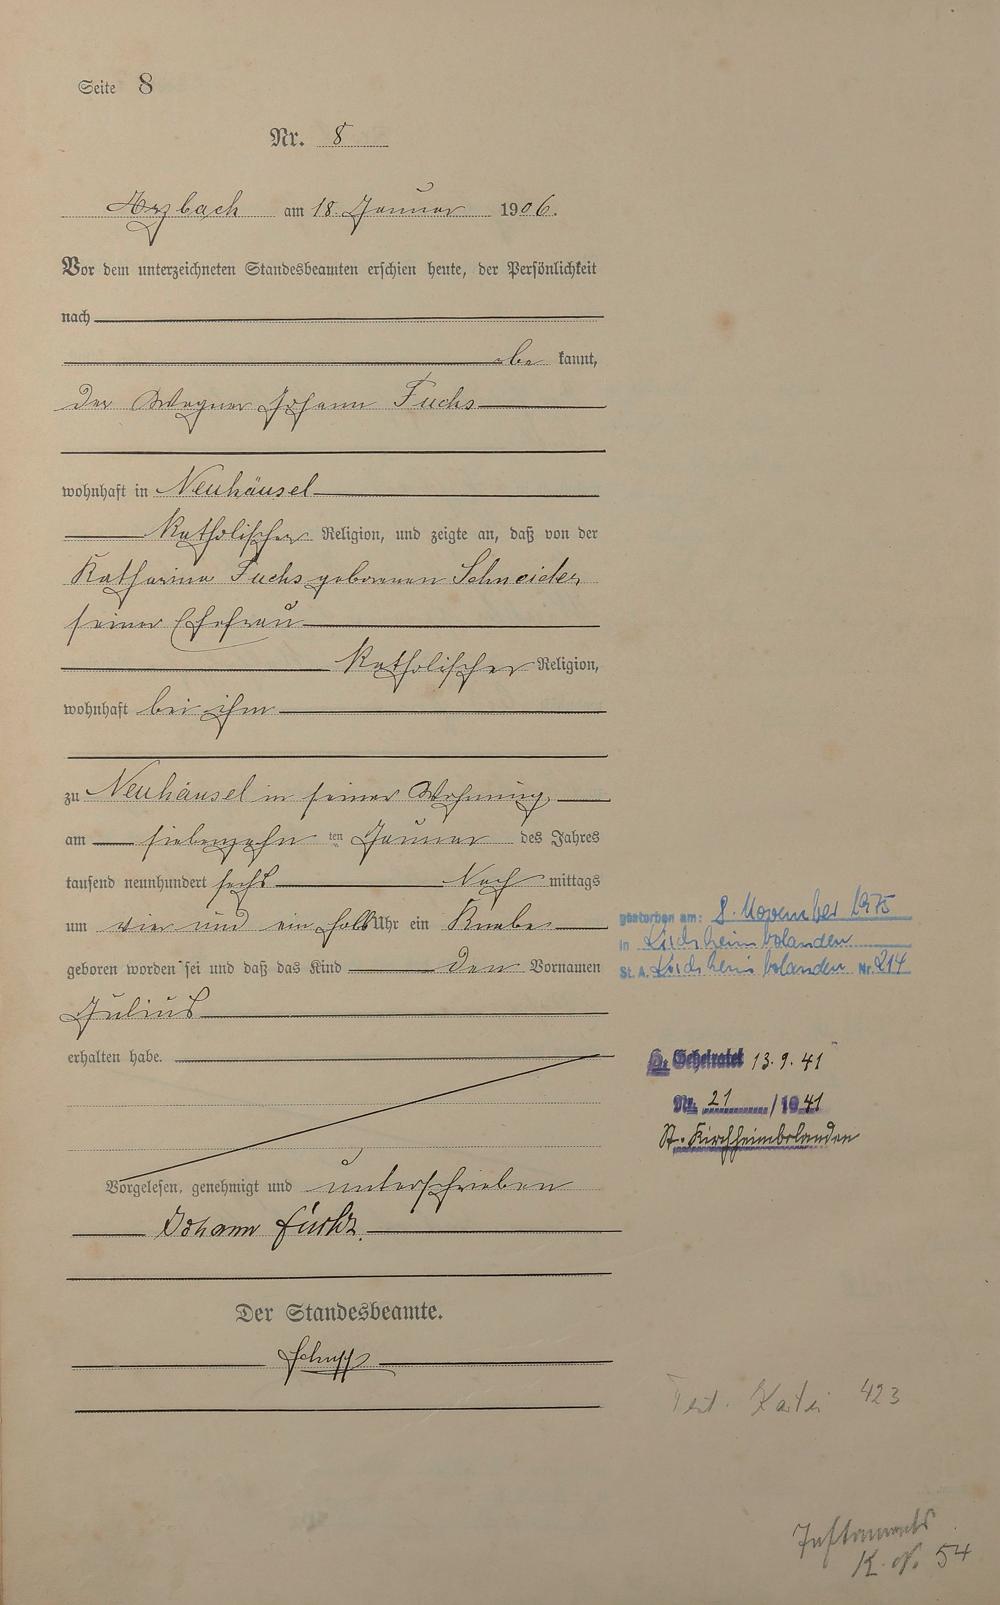 Seite 8
Nr. 8
Arzbach am 18. Januar 1906.
Vor dem unterzeichneten Standesbeamten erschien heute, der Persönlichkeit
nach
be kannt,
der Wagner Johann Fuchs
wohnhaft in Neuhäusel
katholischer Religion, und zeigte an, daß von der
Katharina Fuchs geborenen Schneider
seiner Ehefrau
katholischer Religion,
wohnhaft bei ihm
zu Neuhäusel in seiner Wohnung
am siebenzehn ten Januar des Jahres
tausend neunhundert sechs Nach mittags
um vier und ein halb Uhr ein Knabe
geboren worden sei und daß das Kind den Vornamen
Julius
erhalten habe.
Vorgelesen, genehmigt und unterschrieben
Johann Fuchs
Der Standesbeamte.
gestorben am: 8. November 1975
in Kirchheimbolanden
St. A. Kirchheimbolanden Nr. 214
Geheiratet 13.9.41
Nr. 21 / 1941
St. Kirchheimbolanden
Test. Kartei 423
Testaments
K. N. 54